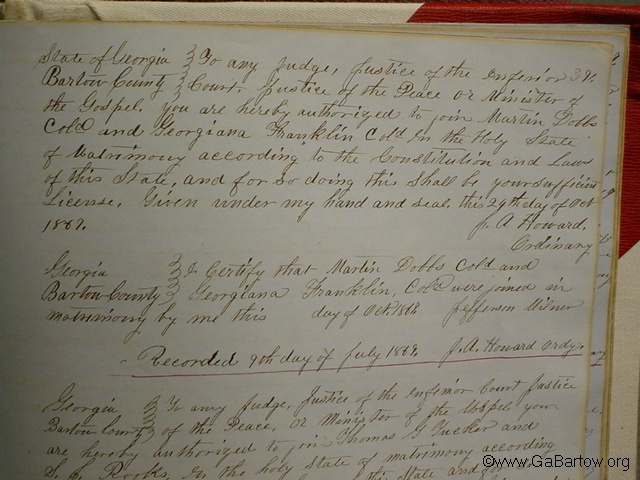 State of Georgia } To any Judge, Justice of the Inferior 391.
Bartow County } Court, Justice of the Peace or Minister of
the Gospel. you are hereby authorized to join Martin Dobbs
Cold and Georgiana Franklin Cold In the Holy State
of Matrimony according to the Constitution and Laws
of this State, and for so doing this shall be your sufficient
License, Given under my hand and seal. this 29th day of Oct
1867. J. A Howard.
Ordinary
Georgia } I Certify that Martin Dobbs Cold and
Bartow County } Georgiana Franklin, Cold were joined in
matrimony by me this day of Oct 1867 Jefferson Milner
Recorded 9th day of July 1869. J. A. Howard Ordy.
Georgia } To any Judge, Justice of the Inferior Court Justice
Bartow County } of the Peace, or Minister of the Gospel you
are hereby authorized to join Thomas G Tucker and
S. E. Rooks, In the holy State of matrimony according
this State and for
©www.GaBartow.org